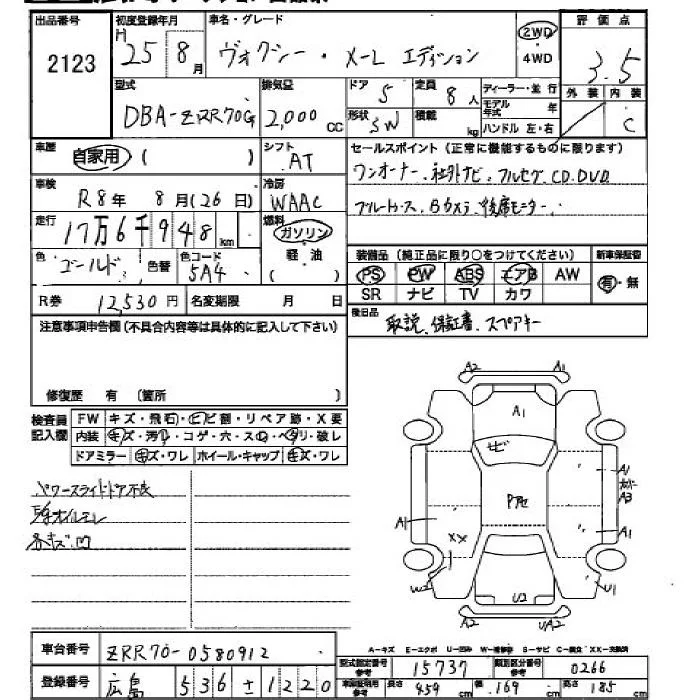 出品番号 初度登録年月 車名・グレード 2WD・4WD 評価点
2123 H25 8月 ヴォクシー・X-L エディション 3.5
型式 排気量 ドア 定員 ディーラー・並行 外装 内装
DBA-ZRR70G 2,000cc 5 8人 モデル年式 年 C
形状 SW 積載 kg ハンドル 左・右
車歴 自家用 ( ) シフト AT セールスポイント (正常に機能するものに限ります)
車検 R8年 8月(26日) 冷房 WAAC ワンオーナー、社外ナビ、フルセグ、CD.DVD
走行 17万6千948km 燃料 ガソリン 軽・油 ブルートゥース、Bカメラ、後席モニター、
色 ゴールド 色替 色コード 5A4 ( ) 装備品 (純正品に限り○をつけてください) 新車保証書
PS PW ABS エアB AW 有・無
R券 12,530円 名変期限 月 日 SR ナビ TV カワ
注意事項申告欄(不具合内容等は具体的に記入して下さい) 後日品 取説、保証書、スペアキー
修復歴 有 (箇所 )
検査員記入欄 FW キズ・飛石・ヒビ割・リペア跡・X要
内装 キズ・汚れ・コゲ・穴・スレ・ヘタリ・破レ
ドアミラー キズ・ワレ ホイール・キャップ キズ・ワレ
パワースライドドア不良
各キズ凹
A2 A1
A1
サビ
A1
A3
A1 A1
XX
W2 U2 U1
A2 UA2
車台番号 ZRR70-0580912 A-キズ E-エクボ U-凹み W-補修跡 S-サビ C-腐食 XX-交換済
登録番号 広島 536 1220 型式指定番号 15737 類別区分番号 0266
長さ 459cm 幅 169cm 高さ 185cm